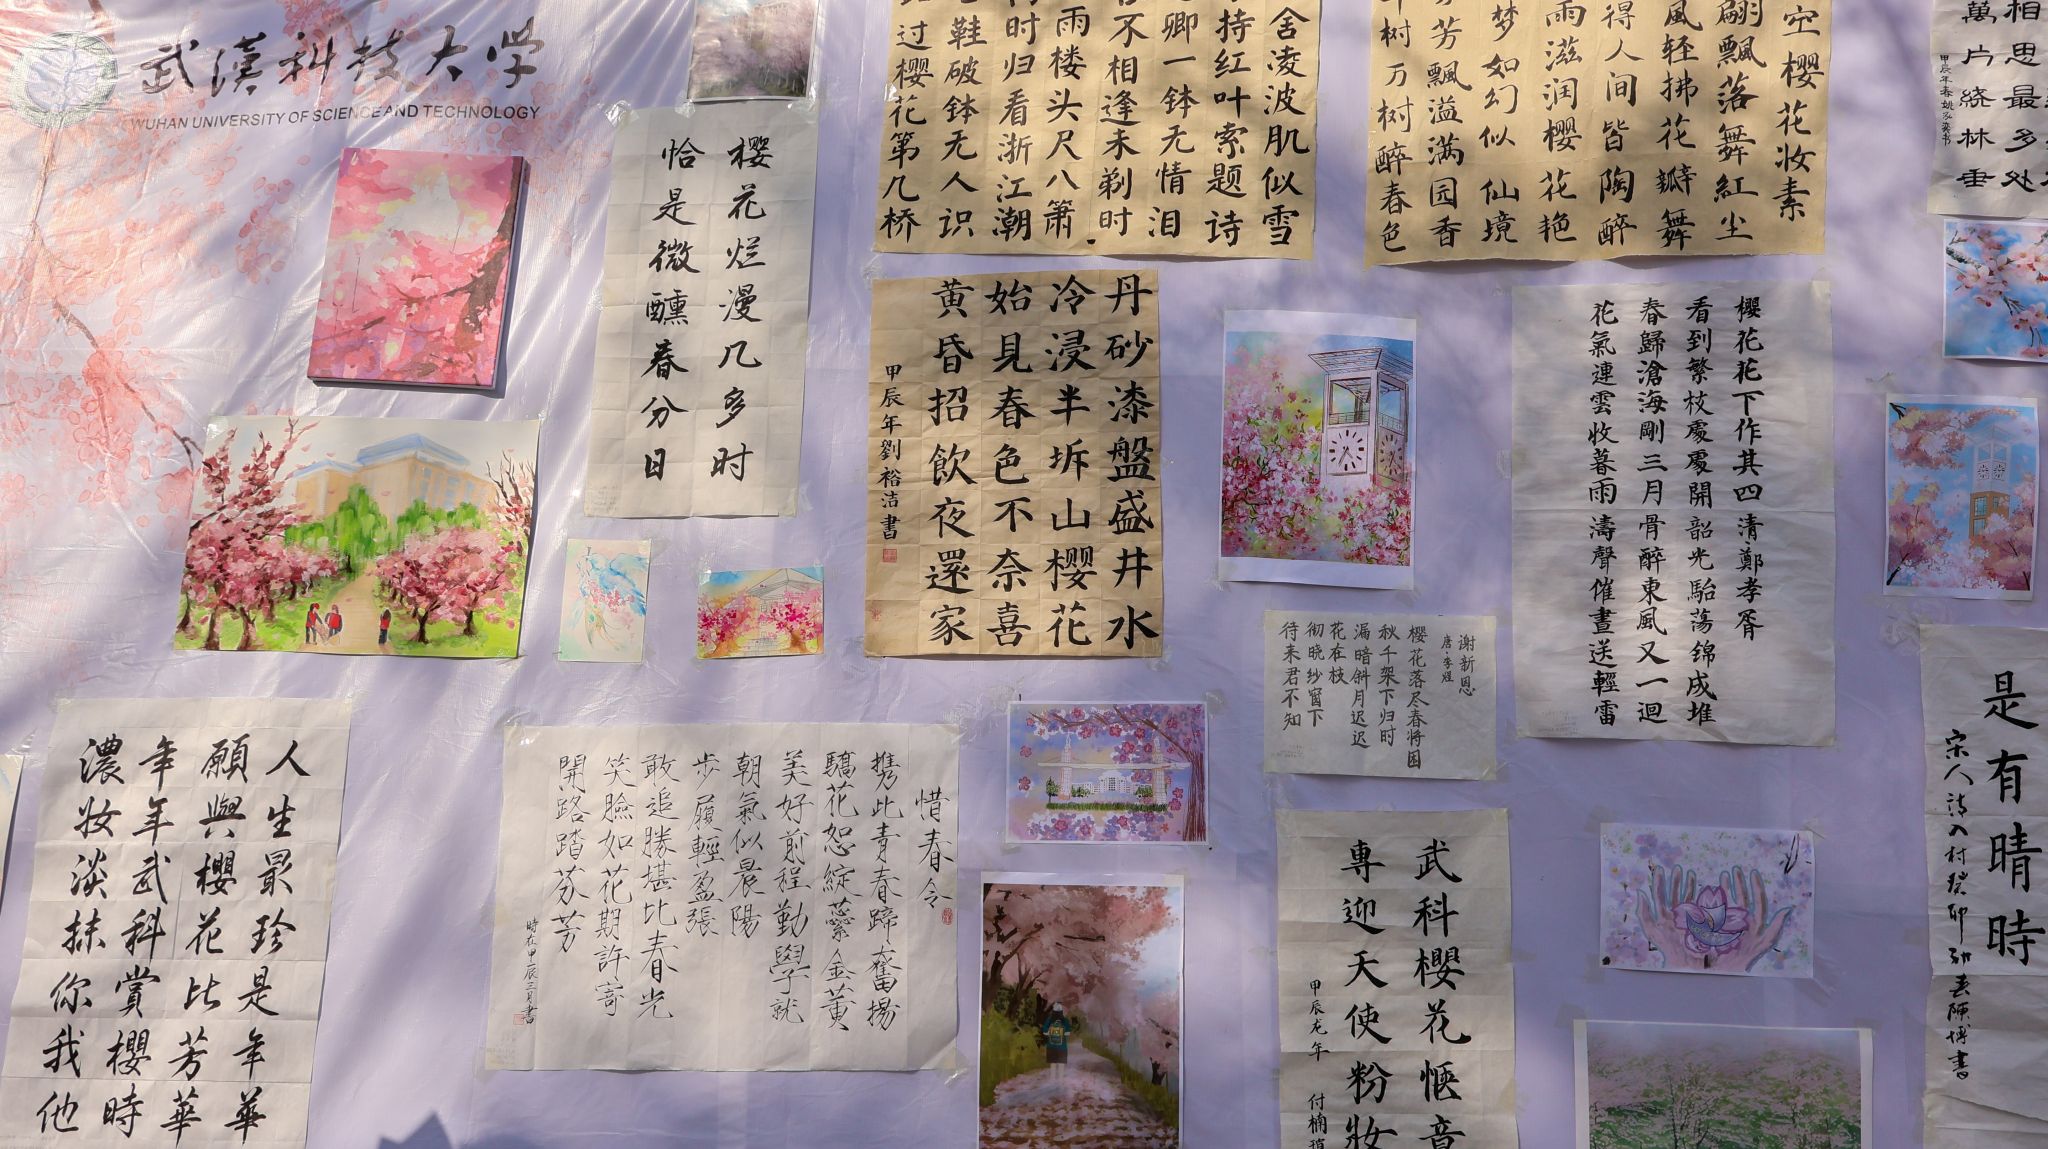 武漢科技大学
WUHAN UNIVERSITY OF SCIENCE AND TECHNOLOGY
櫻花烂漫几多时
恰是微醺春分日
舍凌波肌似雪
持红叶索题诗
卿一钵无情泪
不相逢未剃时
雨楼头尺八箫
时归看浙江潮
鞋破钵无人识
过樱花第几桥
空櫻花妆素
翩飄落舞紅尘
風轻拂花瓣舞
得人间皆陶醉
雨滋润櫻花艳
梦如幻似仙境
芳飄溢满园香
树万树醉春色
相思最多处
萬片绕林垂
甲辰年春姚家奕书
丹砂漆盤盛井水
冷浸半坼山櫻花
始見春色不奈喜
黄昏招飲夜還家
甲辰年劉裕洁書
櫻花花下作其四 清鄭孝胥
看到繁枝處處開韶光駘荡錦成堆
春歸滄海剛三月骨醉東風又一迴
花氣連雲收暮雨濤聲催晝送輕雷
谢新恩
唐·李煜
樱花落尽春将困
秋千架下归时
漏暗斜月迟迟
花在枝
彻晓纱窗下
待来君不知
人生最珍是年華
願與櫻花比芳華
年年武科賞櫻時
濃妝淡抹你我他
惜春令
携此青春蹄奮揚
驕花恕綻蘂金黄
美好前程勤學就
朝氣似晨陽
步履輕盈張
敢追勝堪比春光
笑臉如花期許寄
開路踏芬芳
時在甲辰三月書
武科櫻花惬音
專迎天使粉妝
甲辰龙年
付楠
是有晴時
宋人詩入村